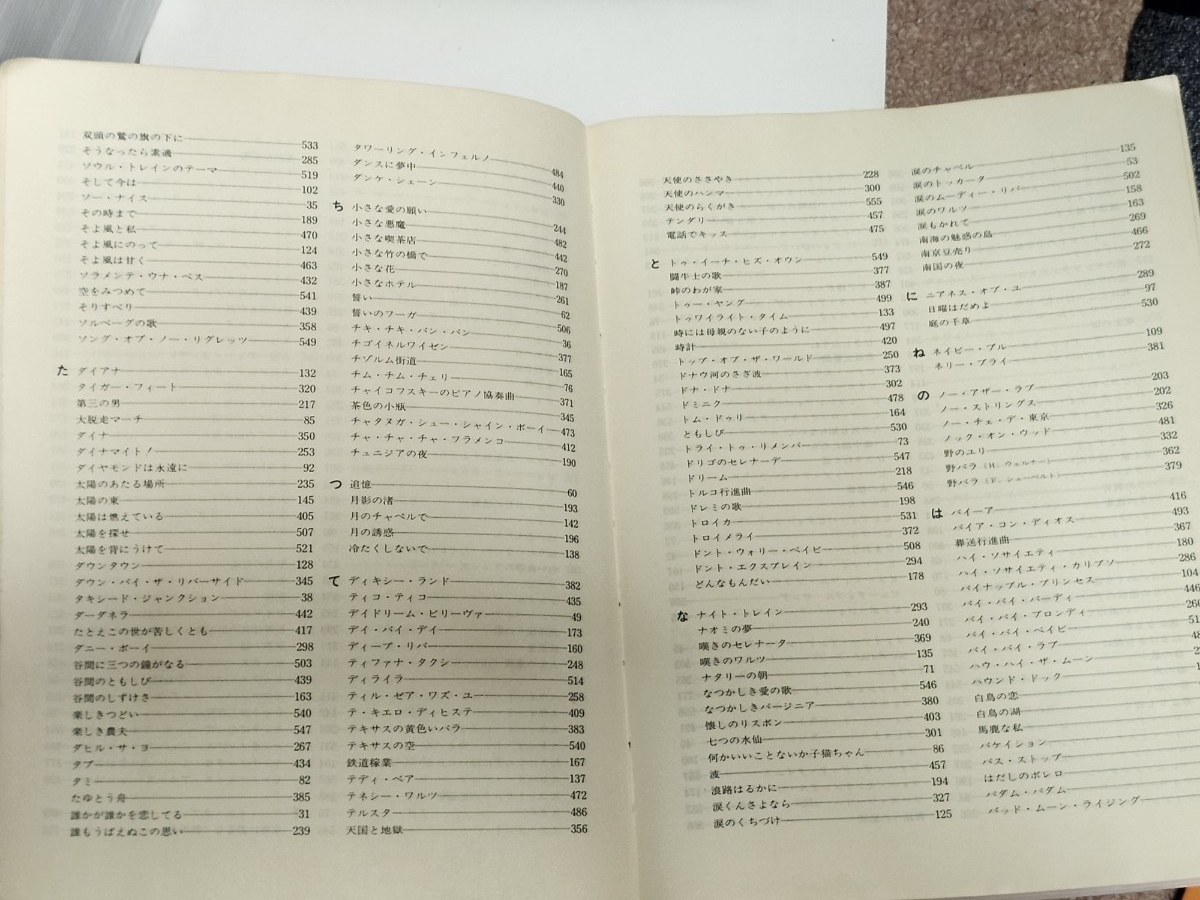 双頭の鷲の旗の下に 533
そうなったら素適 285
ソウル・トレインのテーマ 519
そして今は 102
ソー・ナイス 35
その時まで 189
そよ風と私 470
そよ風にのって 124
そよ風は甘く 463
ソラメンテ・ウナ・ベス 432
空をみつめて 541
そりすべり 439
ソルベーグの歌 358
ソング・オブ・ノー・リグレッツ 549
た ダイアナ 132
タイガー・フィート 320
第三の男 217
大脱走マーチ 85
ダイナ 350
ダイナマイト! 253
ダイヤモンドは永遠に 92
太陽のあたる場所 235
太陽の東 145
太陽は燃えている 405
太陽を探せ 507
太陽を背にうけて 521
ダウンタウン 128
ダウン・バイ・ザ・リバーサイド 345
タキシード・ジャンクション 38
ダーダネラ 442
たとえこの世が苦しくとも 417
ダニー・ボーイ 298
谷間に三つの鐘がなる 503
谷間のともしび 439
谷間のしずけさ 163
楽しきつどい 540
楽しき農夫 547
ダヒル・サ・ヨ 267
タブー 434
タミー 82
たゆとう舟 385
誰かが誰かを恋してる 31
誰もうばえぬこの思い 239
タワーリング・インフェルノ 484
ダンスに夢中 440
ダンケ・シェーン 330
ち 小さな愛の願い 244
小さな悪魔 482
小さな喫茶店 442
小さな竹の橋で 270
小さな花 187
小さなホテル 261
誓い 62
誓いのフーガ 506
チキ・チキ・バン・バン 36
チゴイネルワイゼン 377
チゾルム街道 165
チム・チム・チェリー 76
チャイコフスキーのピアノ協奏曲 371
茶色の小瓶 345
チャタヌガ・シュー・シャイン・ボーイ 473
チャ・チャ・チャ・フラメンコ 412
チュニジアの夜 190
つ 追憶 60
月影の渚 193
月のチャペルで 142
月の誘惑 196
冷たくしないで 138
て ディキシー・ランド 382
ティコ・ティコ 435
デイドリーム・ビリーヴァー 49
デイ・バイ・デイ 173
ディープ・リバー 160
ティファナ・タクシー 248
ディライラ 514
ティル・ゼア・ワズ・ユー 258
テ・キエロ・ディヒステ 409
テキサスの黄色いバラ 383
テキサスの空 540
鉄道稼業 167
テディ・ベア 137
テネシー・ワルツ 472
テルスター 486
天国と地獄 356
天使のささやき 228
天使のハンマー 300
天使のらくがき 555
テンダリー 457
電話でキッス 475
と トゥ・イーチ・ヒズ・オウン 549
闘牛士の歌 377
峠のわが家 387
トゥー・ヤング 499
トゥワイライト・タイム 133
時には母親のない子のように 497
時計 420
トップ・オブ・ザ・ワールド 250
ドナウ河のさざ波 373
ドナ・ドナ 302
ドミニク 478
トム・ドゥリー 164
ともしび 530
トライ・トゥ・リメンバー 73
ドリゴのセレナーデ 547
ドリーム 218
トルコ行進曲 546
ドレミの歌 198
トロイカ 531
トロイメライ 372
ドント・ウォリー・ベイビー 508
ドント・エクスプレイン 294
どんなもんだい 178
な ナイト・トレイン 293
ナオミの夢 240
嘆きのセレナータ 369
嘆きのワルツ 135
ナタリーの朝 71
なつかしき愛の歌 546
なつかしきバージニア 380
懐しのリスボン 403
七つの水仙 301
何かいいことないか子猫ちゃん 86
波 457
浪路はるかに 194
涙くんさよなら 327
涙のくちづけ 125
涙のチャペル 135
涙のトッカータ 53
涙のムーディー・リバー 502
涙のワルツ 158
涙もかれて 163
南海の魅惑の島 269
南京豆売り 466
南国の夜 272
に ニアネス・オブ・ユー 289
日曜はだめよ 97
庭の千草 530
ね ネイビー・ブルー 109
ネリー・ブライ 381
の ノー・アザー・ラブ 203
ノー・ストリングス 202
ノー・チェ・デ・東京 326
ノック・オン・ウッド 481
野のユリ 332
野バラ(H. ウェルナー) 362
野バラ(F. シューベルト) 379
は バイーア 416
バイア・コン・ディオス 493
葬送行進曲 367
ハイ・ソサイエティ 180
ハイ・ソサイエティ・カリプソ 286
パイナップル・プリンセス 104
バイ・バイ・バーディ 446
バイ・バイ・ブロンディ 260
バイ・バイ・ベイビー
バイ・バイ・ラブ
ハウ・ハイ・ザ・ムーン
ハウンド・ドック
白鳥の恋
白鳥の湖
馬鹿な私
バケイション
バス・ストップ
はだしのボレロ
パダム・パダム
バッド・ムーン・ライジング